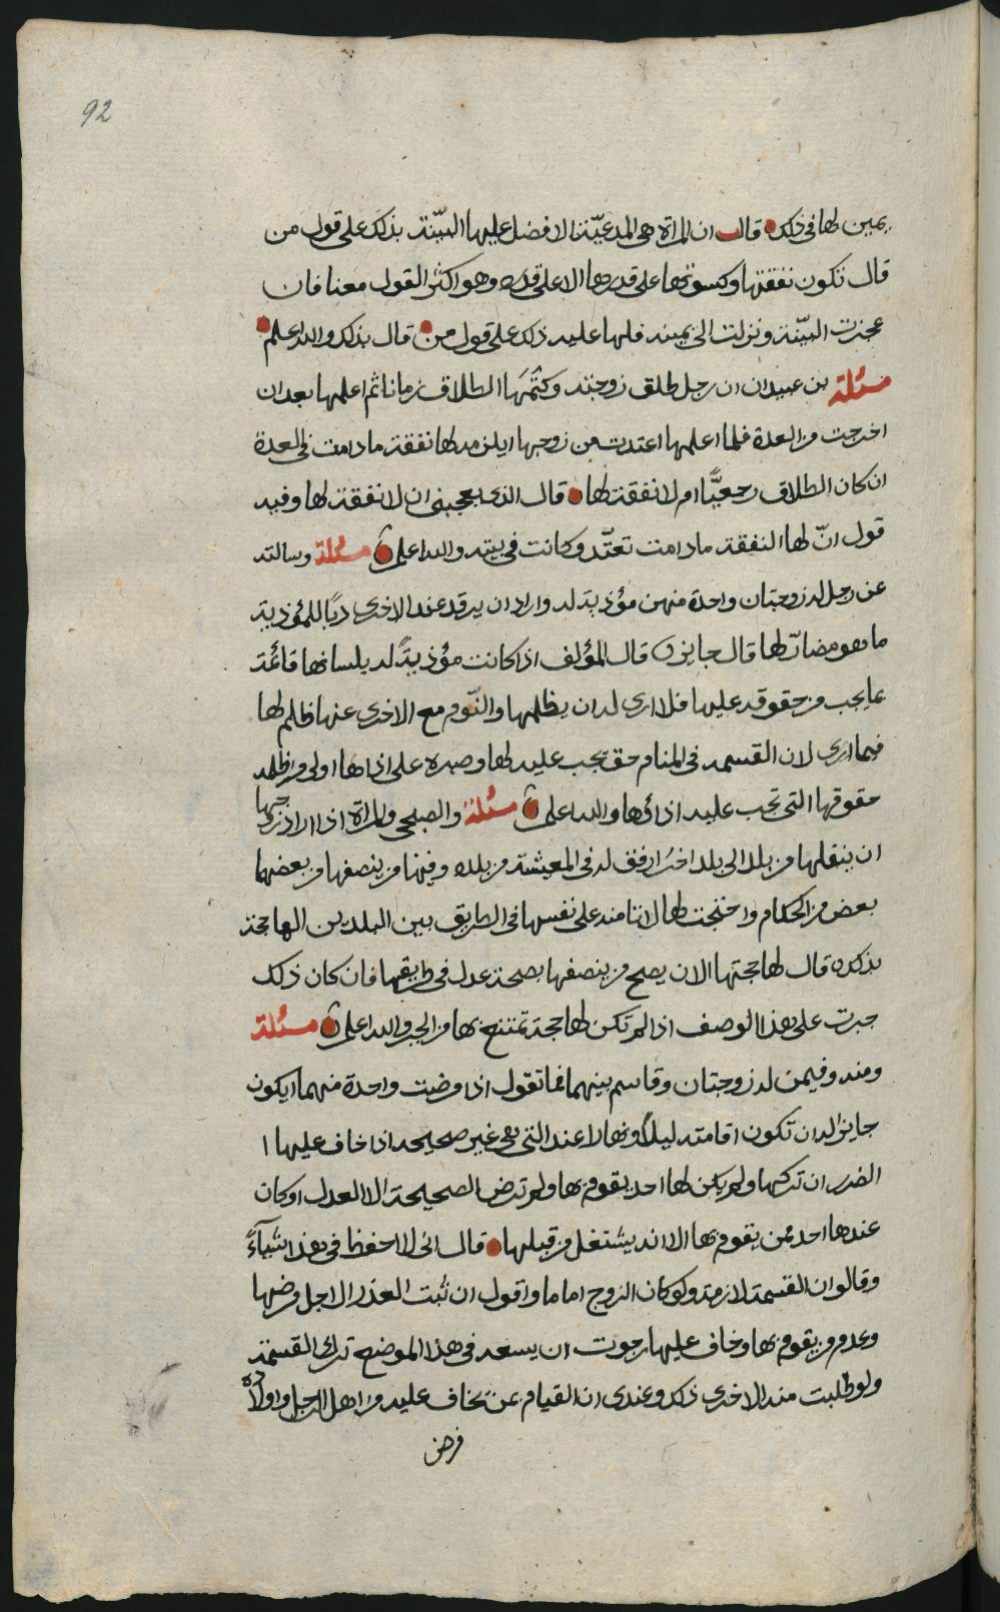 92
يمين لها في ذلك قال ان المراة هي المدعيّة الافضل عليها البيّنة بذلك على قول من
قال تكون نفقتها وكسوتها على قدرها الا على قدره وهو اكثر القول معنا فان
عجزت البيّنة ونزلت الى يمينه فلها عليه ذلك على قول من قال بذلك والله اعلم
مسئلة بن عبيدان ان رجل طلق زوجته وكتّمها الطلاق زمانا ثم اعلمها بعد ان
اخرجت من العدة فلما اعلمها اعتدت من زوجها ايلزمه لها نفقة ما دامت في العدة
ان كان الطلاق رجعيًّا ام لا نفقة لها قال الذي يعجبني ان لا نفقة لها وفيه
قول انّ لها النفقة ما دامت تعتّد وكانت في بيته والله اعلم مسئلة وسالته
عن رجل له زوجتان واحدة منهن مؤذية له واراد ان يرقد عند الاخرى للمؤذية
ما هو مضارّ لها قال جايز قال المؤلف اذا كانت مؤذيةً له بلسانها قائمة
بما يجب من حقوقه عليها فلا ارى له ان يظلمها والنّوم مع الاخرى عنها ظلم لها
فيما ارى لان القسمة في المنام حق يجب عليه لها وصبره على اذاها اولى من ظلمه
حقوقها التي تجب عليه اذائها والله اعلم مسئلة والصبحي والمراة اذا اراد زوجها
ان ينقلها من بلد الى بلد اخر ارفق له في المعيشة من بلده وفيها من ينصفها من بعضها
بعض من الحكام واحتجت لها لا تامنه على نفسها في الطريق بين البلدين الها حجة
بذكره قال لها حجتها الا ان يصح من ينصفها بصحة عدل في طريقها فان كان ذلك
جبرت على هذا الوصف اذا لم تكن لها حجة تمتنع بها من الجبر والله اعلم مسئلة
ومنه وفيمن له زوجتان وقاسم بينهما فما تقول اذا مرضت واحدة منهما ايكون
جايز له ان تكون اقامته ليلًا ونهارا عند التي هي غير صحيحه اذا خاف عليها ا
الضرر ان تركها ولم يكن لها احد يقوم بها ولم ترض الصحيحة الا العدل او كان
عندها احد ممن يقوم بها الا انه يشتغل من قبلها قال اني لا احفظ في هذا شيآءً
وقالوا ان القسمة لازمة ولو كان الزوج اماما واقول ان ثبت العذر الاجل مرضها
وعدم من يقوم بها وخاف عليها رجوت ان يسعه في هذا الموضع ترك القسمة
ولو طلبت منه الاخرى ذلك وعندي ان القيام عن يخاف عليه من اهل الرجل واولاده
فرض